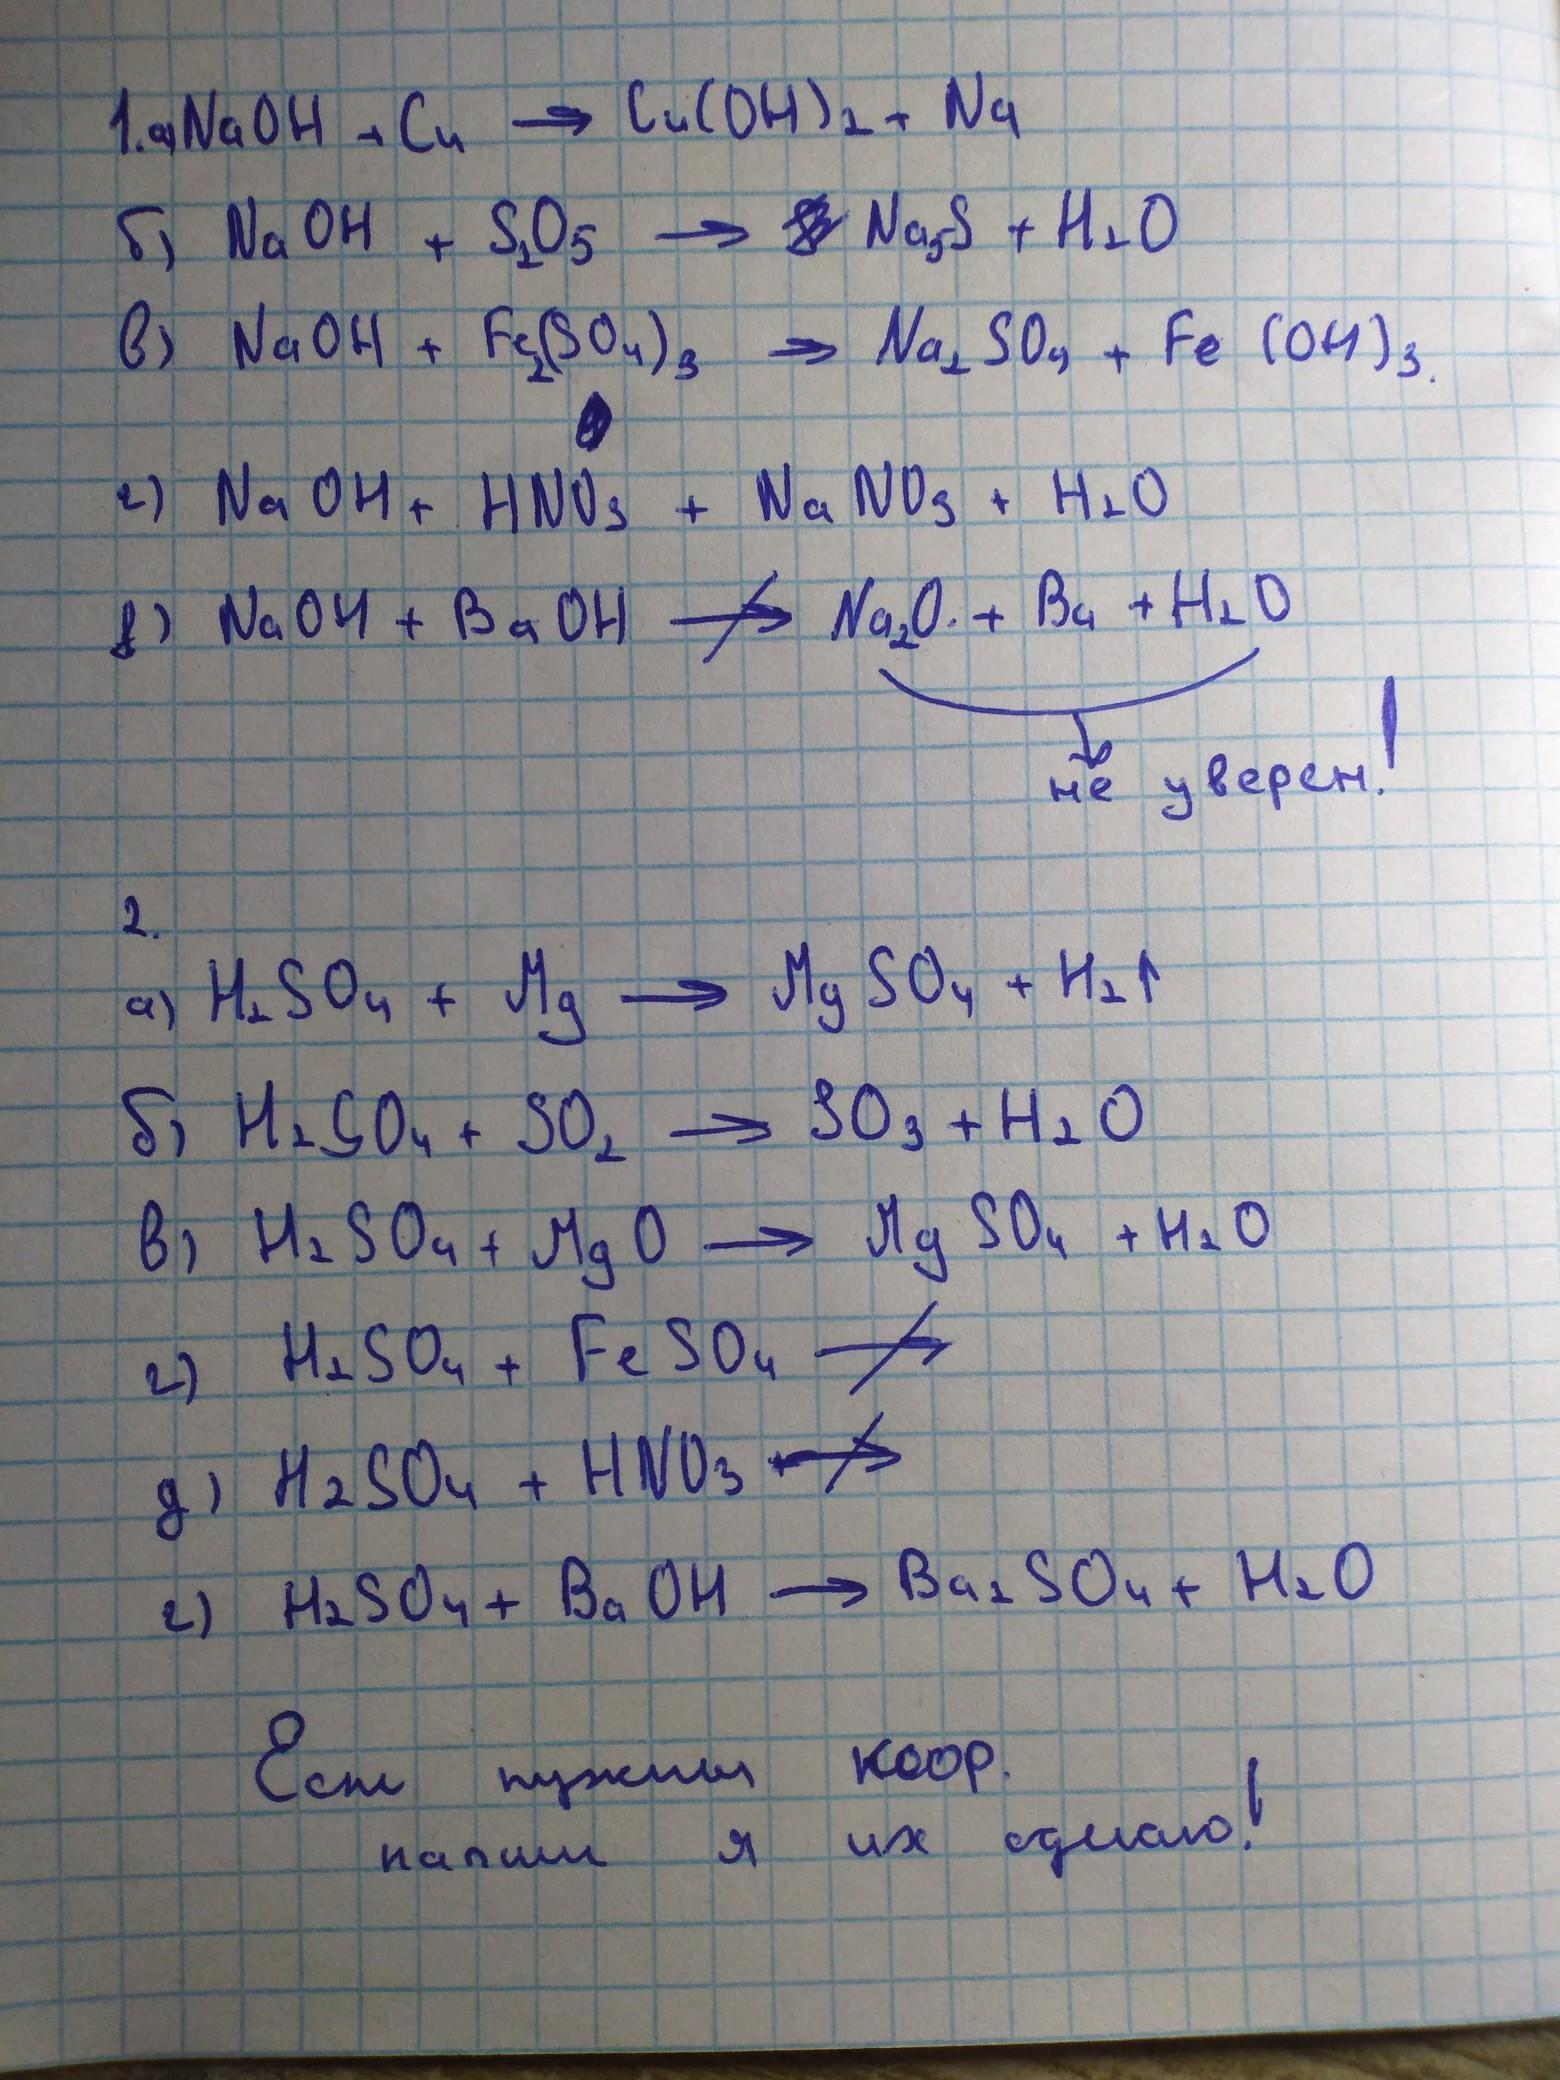 1.a) NaOH + Cu → Cu(OH)2 + Na
б) NaOH + S2O5 → Na5S + H2O
в) NaOH + Fe2(SO4)3 → Na2SO4 + Fe(OH)3.
г) NaOH + HNO3 + NaNO3 + H2O
д) NaOH + BaOH ↛ Na2O. + Ba + H2O
не уверен!
2.
а) H2SO4 + Mg → MgSO4 + H2↑
б) H2SO4 + SO2 → SO3 + H2O
в) H2SO4 + MgO → MgSO4 + H2O
г) H2SO4 + FeSO4 ↛
д) H2SO4 + HNO3 ↛
г) H2SO4 + BaOH → Ba2SO4 + H2O
Если нужны коор.
напиши я их сделаю!